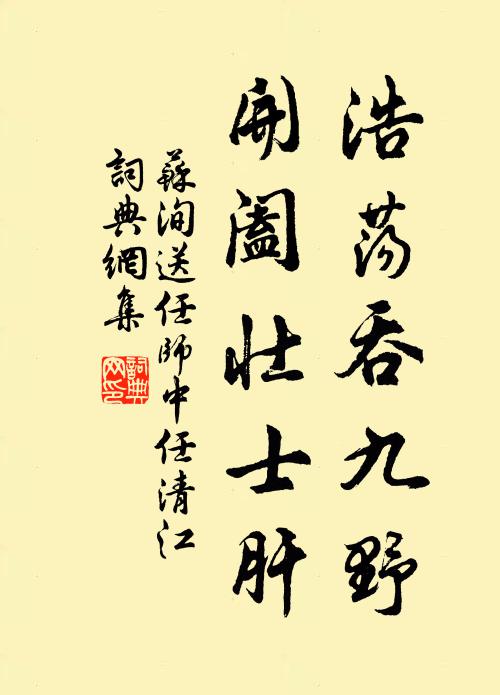 浩蕩吞九野
開闔壯士肝
蘇洵送任師中任清江
詞典網集
詞典網印